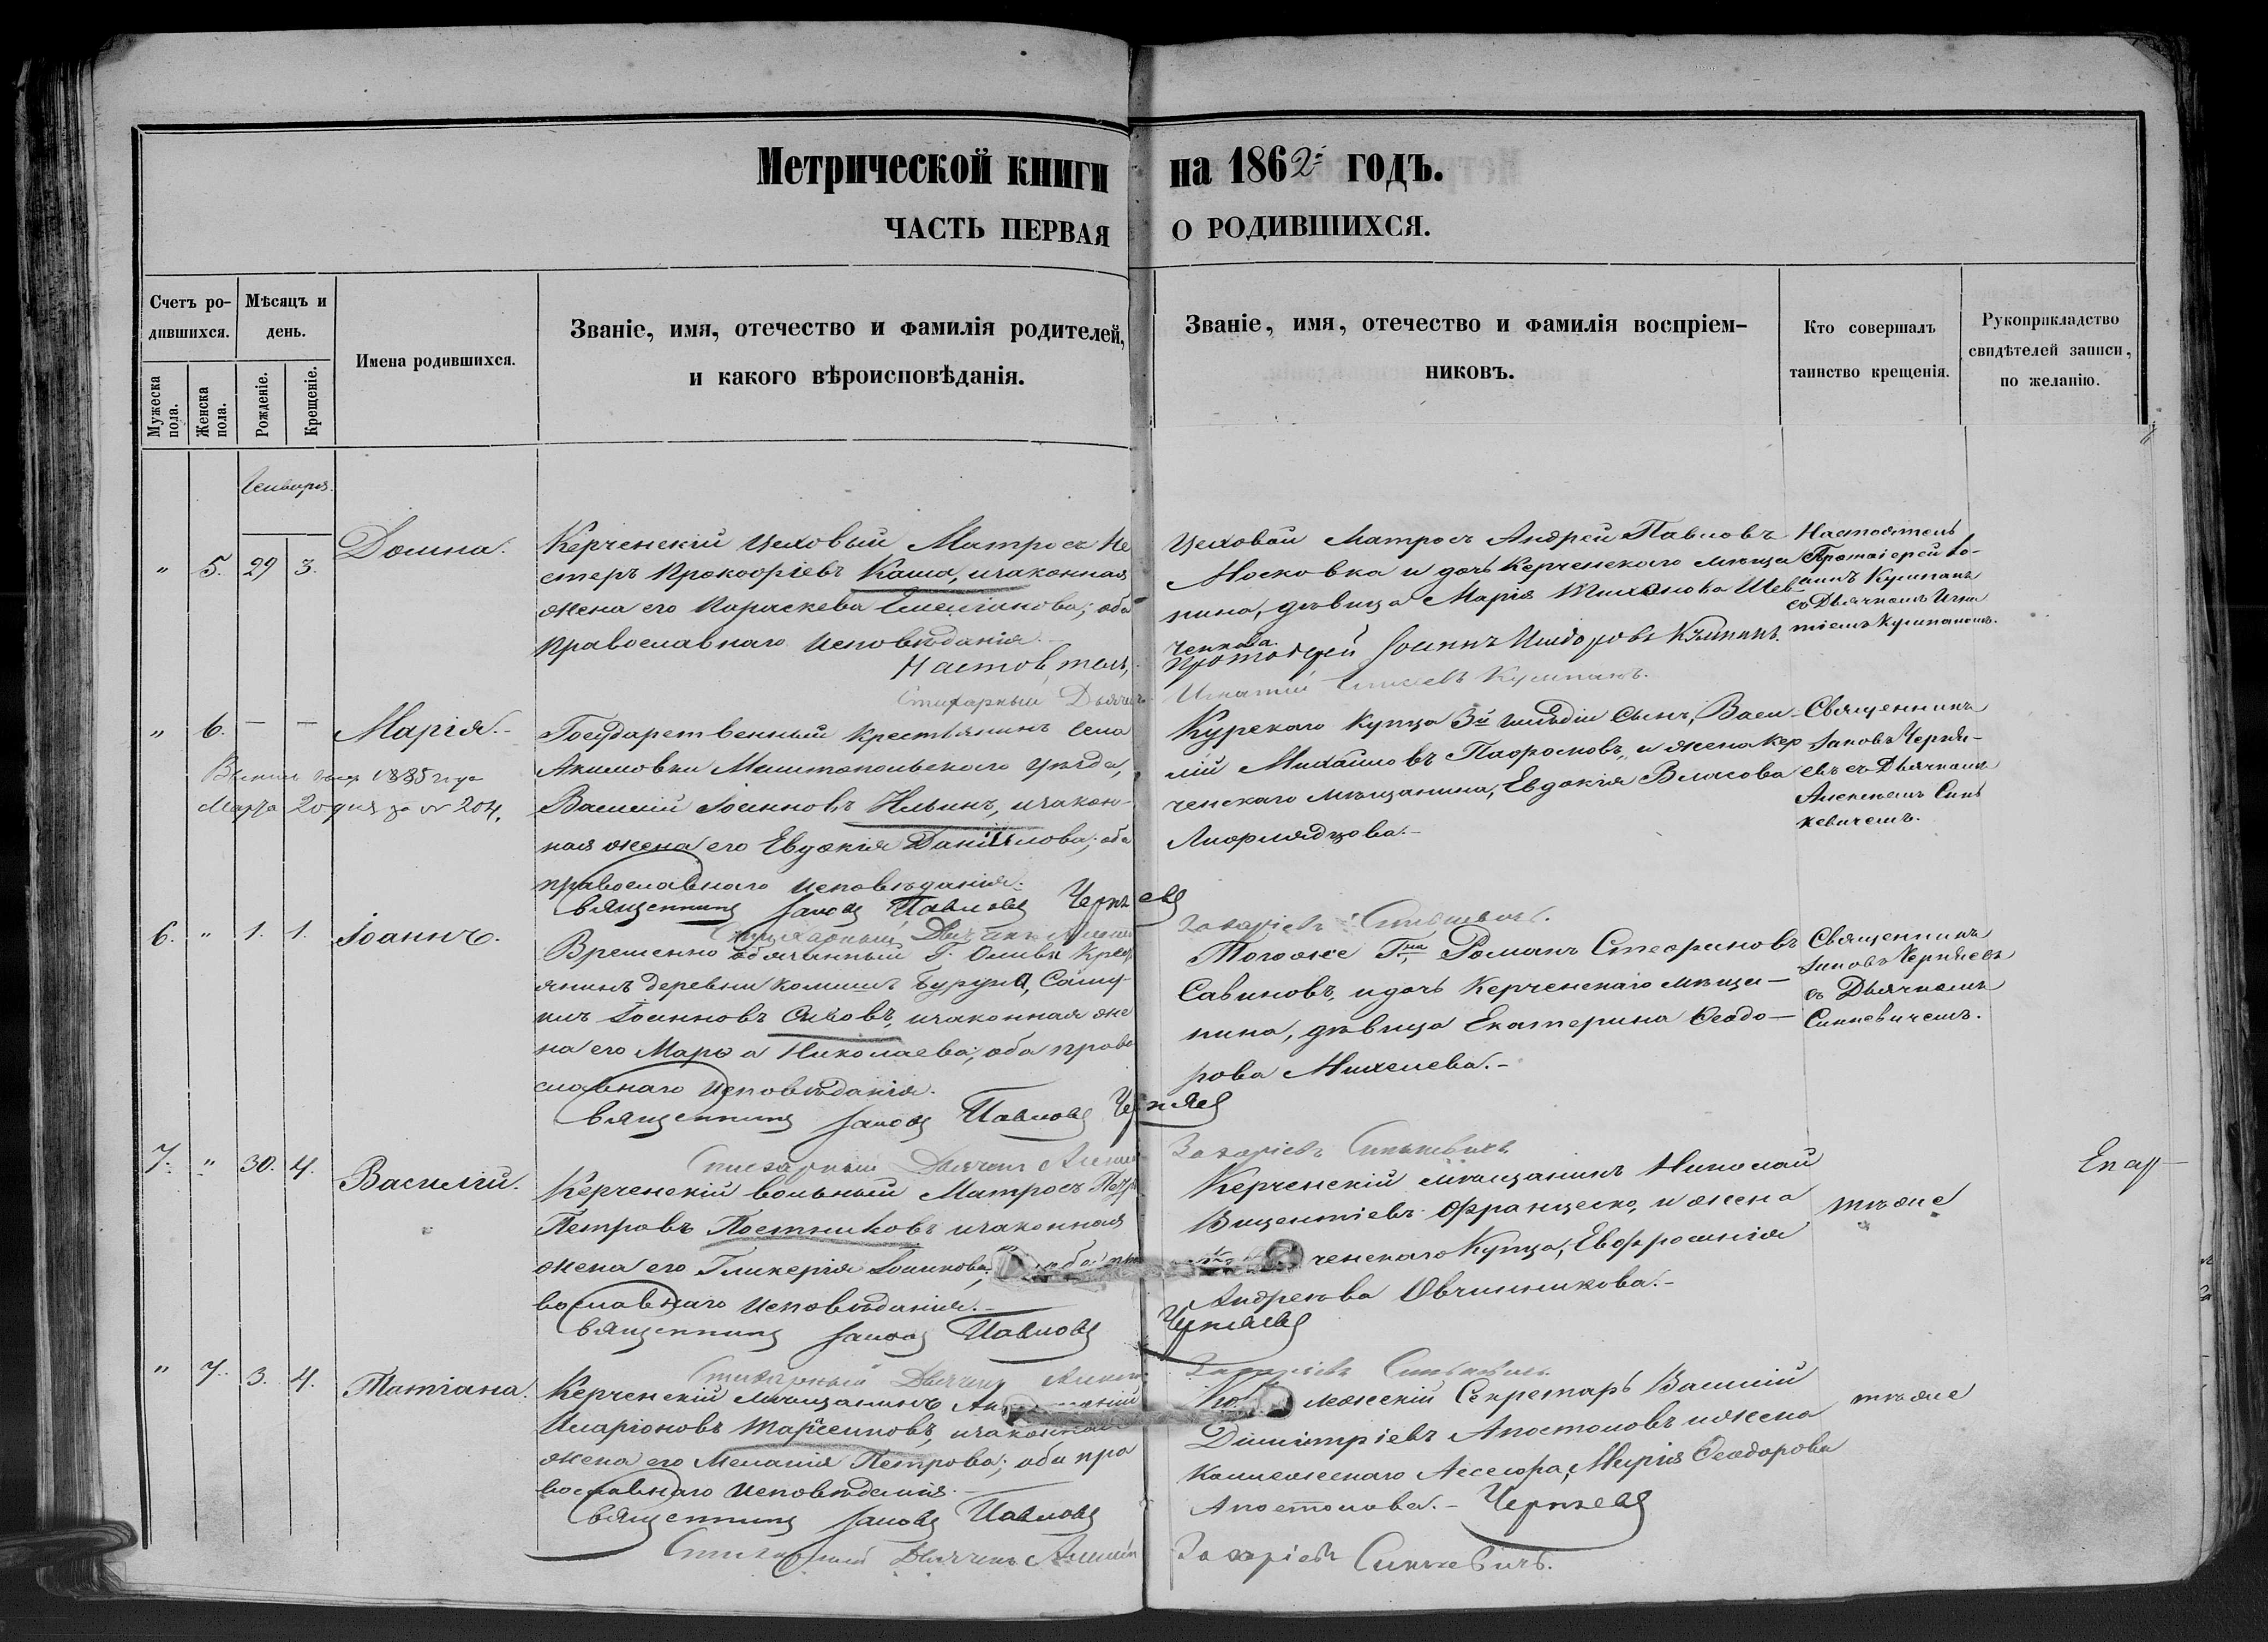 Метрической книги на 1862й годъ.
ЧАСТЬ ПЕРВАЯ О РОДИВШИХСЯ.
Счетъ ро-
дившихся.
Мѣсяцъ и
день.
Мужеска пола.
Женска пола.
Рожденіе.
Крещеніе.
Имена родившихся.
Званіе, имя, отечество и фамилія родителей,
и какого вѣроисповѣданія.
Званіе, имя, отечество и фамилія воспріем-
никовъ.
Кто совершалъ
таинство крещенія.
Рукоприкладство
свидѣтелей записи,
по желанію.
Генваря.
" 5. 29 3. Домна.
Керченскій Цеховый Матросъ Не
стеръ Прокофіевъ Каша, изаконная
жена его Параскева Емеліанова; оба
православнаго исповѣданія.
Настоятель,
Стихарный Дьячекъ
Цеховой Матросъ Андрей Павловъ
Московка и дочь Керченскаго мѣща
нина, дѣвица Марія Тихонова Шев
ченкова.
Протоіерей Іоаннъ Кумпанъ
Игнатій Кумпанъ.
Настоятель
Протоіерей Іо-
аннъ Кумпанъ
съ Дьячкомъ Игна
тіемъ Кумпаномъ.
" 6. — — Марія.
1885 года
Марта 20 дня за № 204.
Государственный крестьянинъ села
Акимовки Мелитопольскаго уѣзда,
Василій Іоанновъ Ильинъ, изакон-
ная жена его Евдокія Даніилова; оба
православнаго исповѣданія.
Священникъ Іаковъ Павловъ Черняевъ
Курскаго купца 3й гильдіи сынъ, Васи-
лій Михайловъ Пафромовъ, и жена Кер
ченскаго мѣщанина, Евдокія Власова
Священникъ
Іаковъ Черня-
евъ съ Дьячкомъ
Алексѣемъ Синь
кевичемъ.
6. " 1. 1. Іоаннъ.
Стихарный Дьячекъ
Захаріевъ Синькевичъ.
Временно обязанный Г. Оливы Крест
янинъ деревни Комышъ Буруна, Саму-
илъ Іоанновъ изаконная же
на его Марѳа Николаева; оба право
славнаго исповѣданія.
Священникъ Іаковъ Павловъ Черняевъ
Тогоже Гна Романъ Стефановъ
Савиновъ, и дочь Керченскаго мѣща-
нина, дѣвица Екатерина Ѳеодо-
рова Михелева.-
Священникъ
Іаковъ Черняевъ
съ Дьячкомъ
Синкевичемъ.
7. " 30. 4. Василій.
Стихарный Дьячекъ
Захаріевъ Синькевичъ
Керченскій вольный Матросъ Петръ
Петровъ Постниковъ изаконная
жена его Гликерія Іоаннова; оба пра
вославнаго исповѣданія.-
Священникъ Іаковъ Павловъ Черняевъ
Керченскій мѣщанинъ Николай
Вицентіевъ Францеско, и жена
ченскаго Купца, Евфросинія
Андреева Овчинникова.-
тѣже
" 7. 3. 4. Татіана.
Стихарный Дьячекъ
Захаріевъ Синькевичъ
Керченскій мѣщанинъ
Иларіоновъ изаконная
жена его Меланія Петрова; оба пра
вославнаго исповѣданія.-
Священникъ Іаковъ Павловъ Черняевъ
Секретарь Василій
Димитріевъ Апостоловъ и жена
Коллежскаго Ассесора, Марія Ѳеодорова
Апостолова.-
тѣже
Стихарный Дьячекъ Алексѣй Захаріевъ Синькевичъ.